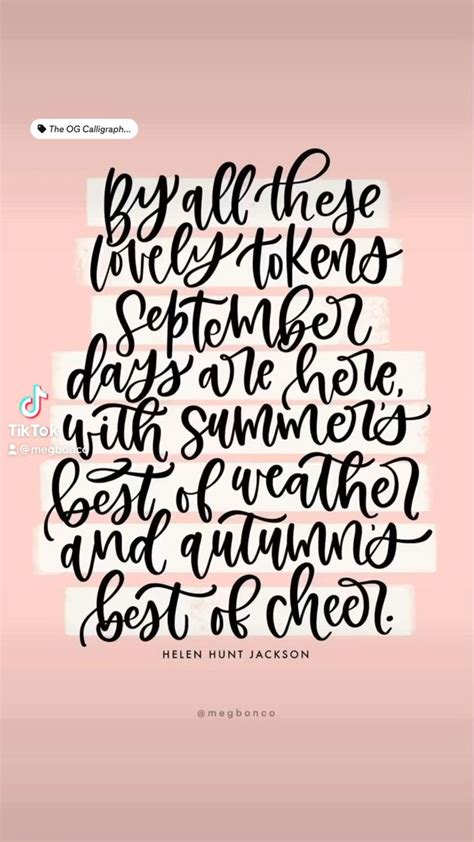 The OG Calligraph...
By all these
lovely tokens
September
days are here,
with summer's
best of weather
and autumn's
best of cheer.
HELEN HUNT JACKSON
TikTok
@megbonco
@megbonco